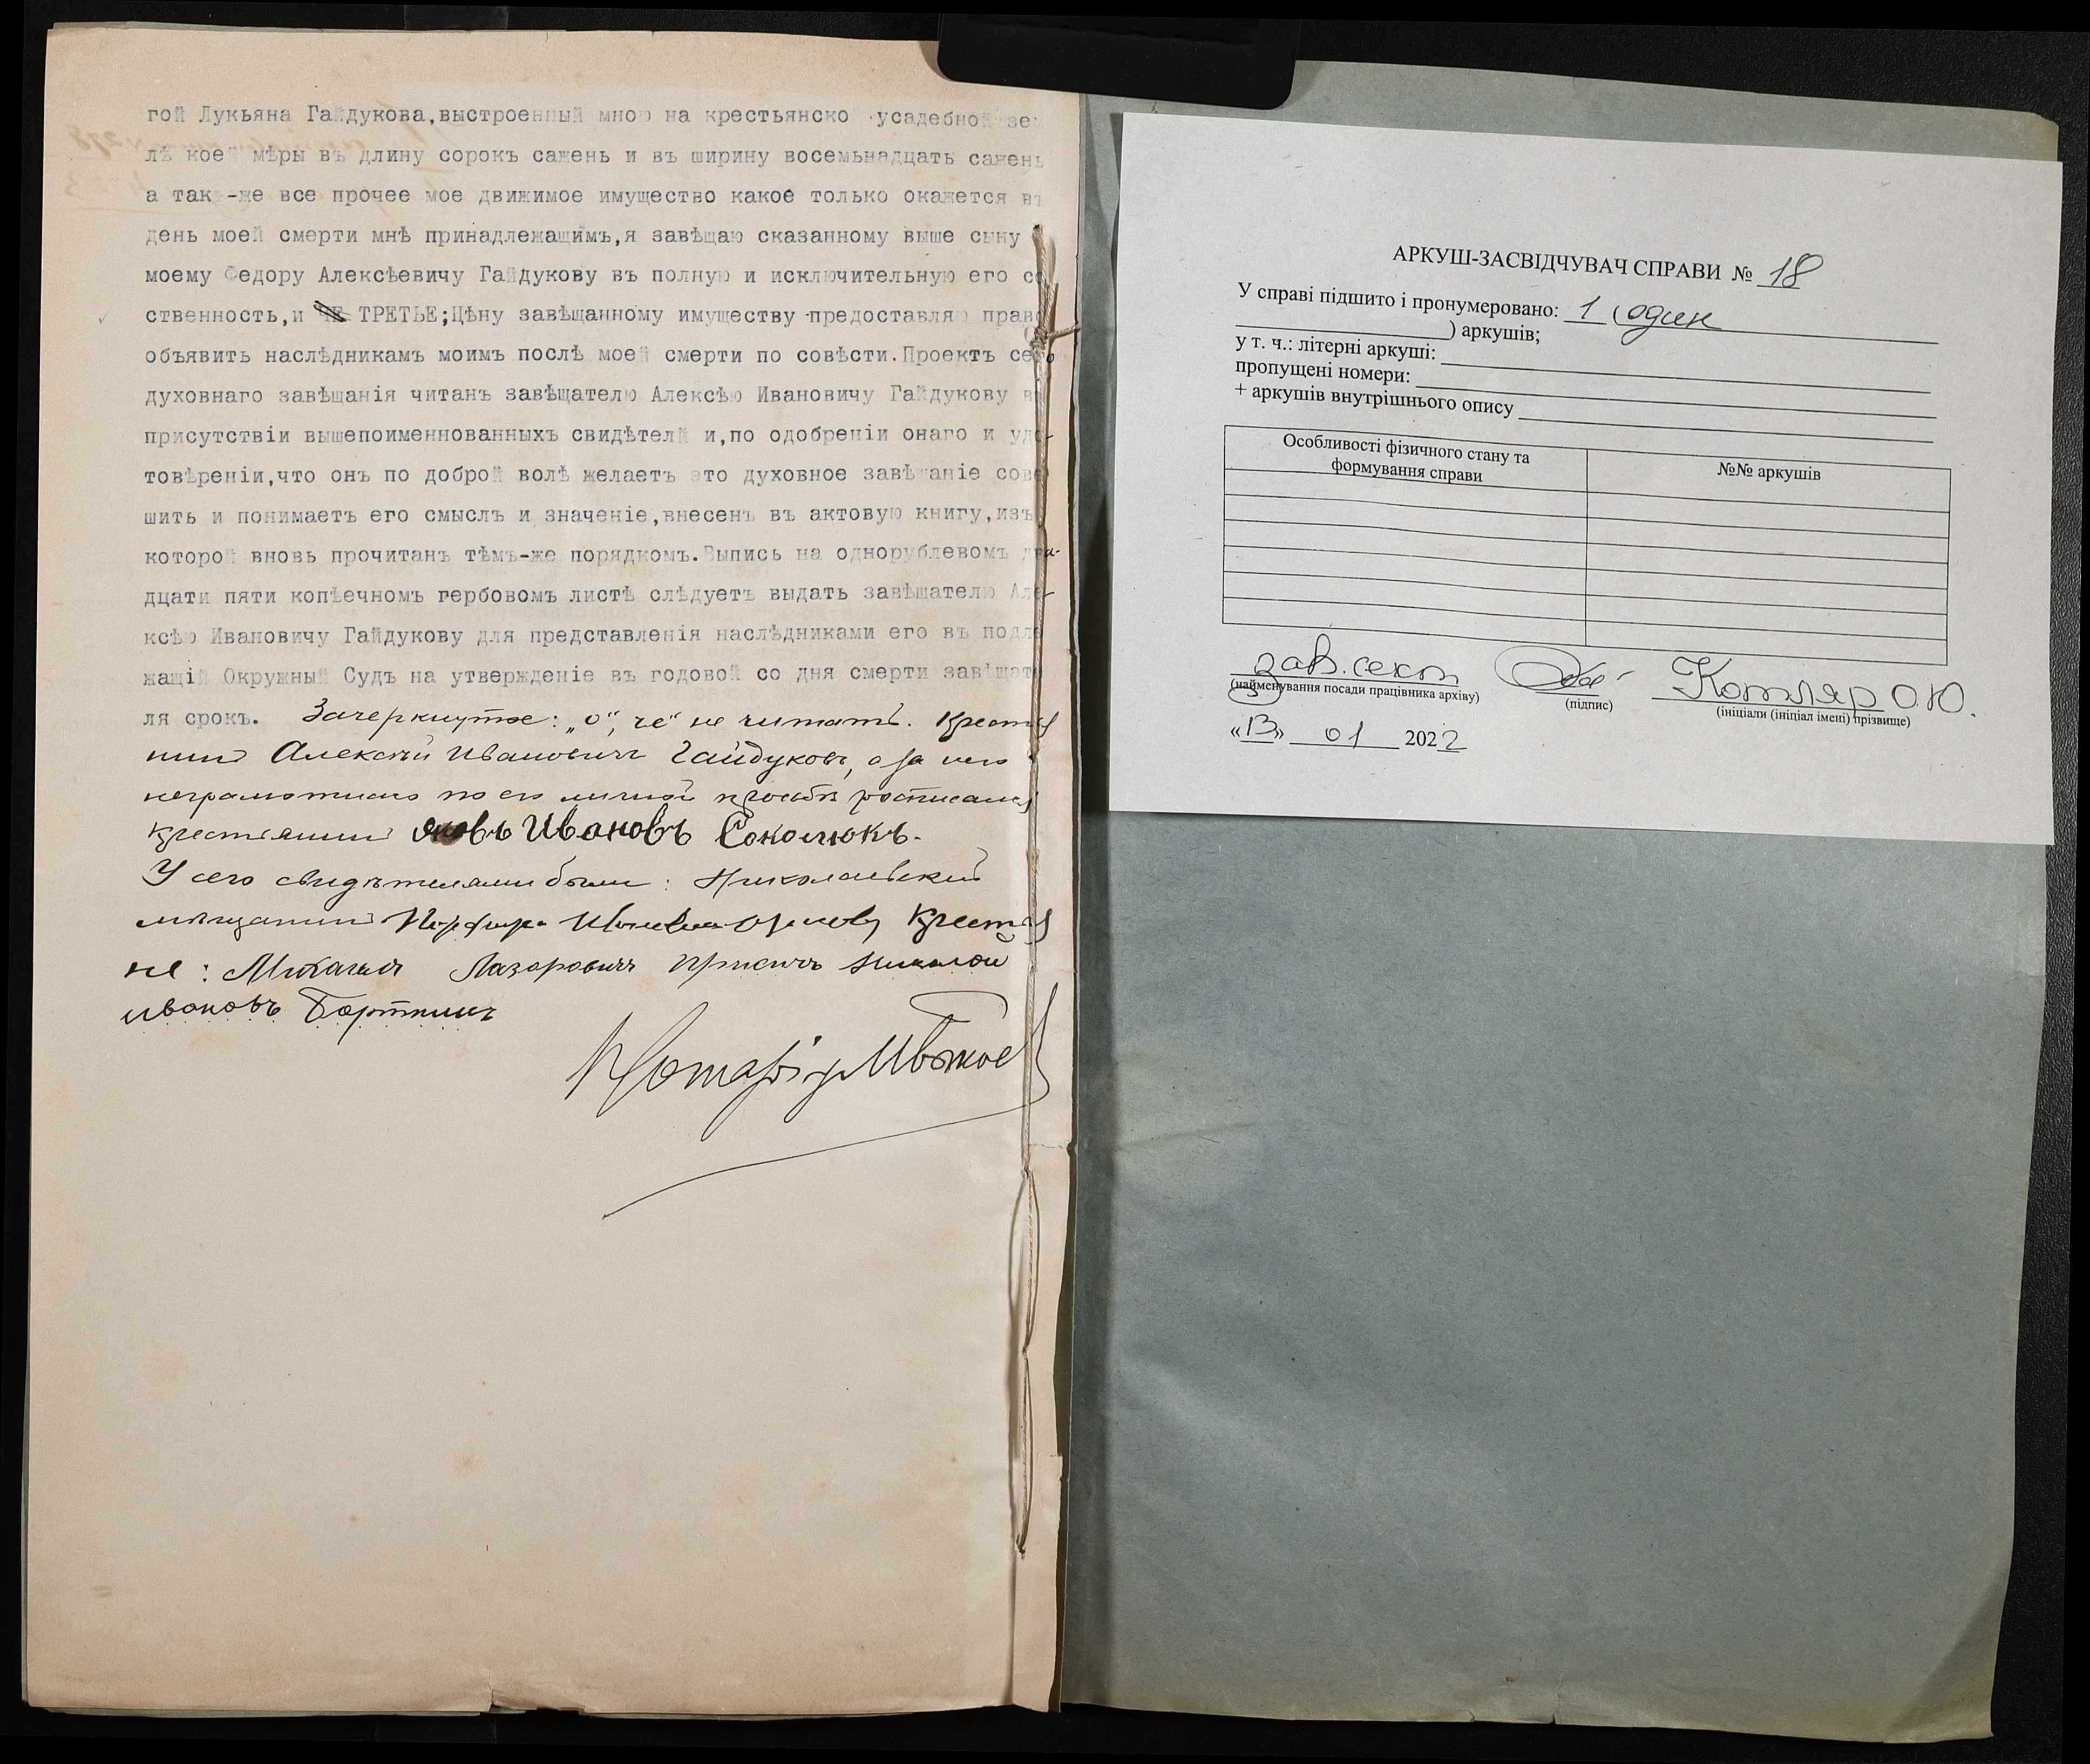 гой Лукьяна Гайдукова,выстроенный мною на крестьянской усадебной зем
лѣ коей мѣры въ длину сорокъ сажень и въ ширину восемьнадцать сажень
а так -же все прочее мое движимое имущество какое только окажется въ
день моей смерти мнѣ принадлежащимъ,я завѣщаю сказанному выше сыну
моему Федору Алексѣевичу Гайдукову въ полную и исключительную его со
ственность,и ЧЕ ТРЕТЬЕ;Цѣну завѣщанному имуществу предоставляю право
объявить наслѣдникамъ моимъ послѣ моей смерти по совѣсти.Проектъ сего
духовнаго завѣщанія читанъ завѣщателю Алексѣю Ивановичу Гайдукову въ
присутствіи вышепоименнованныхъ свидѣтелй и,по одобреніи онаго и удо-
товѣреніи,что онъ по доброй волѣ желаетъ это духовное завѣщаніе сове
шить и понимаетъ его смыслъ и значеніе,внесенъ въ актовую книгу,изъ
которой вновь прочитанъ тѣмъ-же порядкомъ.Выпись на однорублевомъ два-
дцати пяти копѣечномъ гербовомъ листѣ слѣдуетъ выдать завѣщателю Але-
ксѣю Ивановичу Гайдукову для представленія наслѣдниками его въ подле
жащій Окружный Судъ на утвержденіе въ годовой со дня смерти завѣщате
ля срокъ. Зачеркнутое: „о“, че“ не читать. Крестья
нинъ Алексѣй Ивановичъ Гайдуковъ, а за него
неграмотнаго по его личной просьбѣ росписался
крестьянинъ Яковъ Ивановъ Соколюкъ.
У сего свидѣтелями были: Николаевскій
мѣщанинъ Порфирій Крестья
не: Михаилъ Лазаровичъ Николай
Ивановъ
Нотаріусъ
АРКУШ-ЗАСВІДЧУВАЧ СПРАВИ № 18
У справі підшито і пронумеровано: 1 (один
) аркушів;
у т. ч.: літерні аркуші:
пропущені номери:
+ аркушів внутрішнього опису
Особливості фізичного стану та
формування справи
№№ аркушів
зав. сект Котляр О.Ю.
(найменування посади працівника архіву) (підпис) (ініціали (ініціал імені) прізвище)
«13» 01 2022